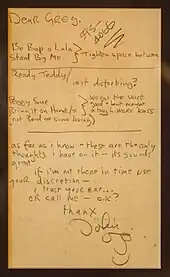 Dear Greg,
Be Bop a Lula
Stand By Me
Tighten space between
Ready Teddy / is it distorting?
Peggy Sue
Bring it on Home etc
(not Send me some loving)
weigh the voice
"good" but needed
a bit more bass
as far as i know - these are the only
thoughts i have on it - its sounds
great!
if i'm not there in time use
your discretion -
i trust your ear...
or call me - o.k?
thanx
John